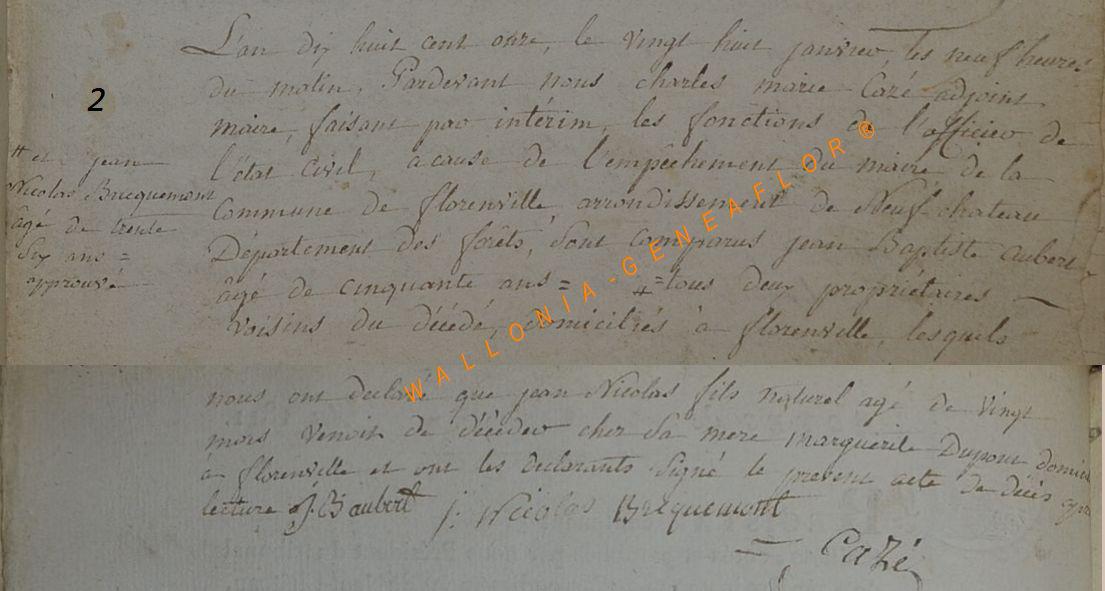 2
L'an dix huit cent onze, le vingt huit janvier, les neuf heures
du matin, Pardevant nous charles marie Cazé adjoint
maire, faisant par intérim, les fonctions de l'officier de
l'état civil, acause de l'empêchement du maire de la
Commune de florenville arrondissement de Neufchateau
Département des forêts, Sont comparus jean Baptiste aubert
âgé de cinquante ans = # = tous deux propriétaires
voisins du décédé, domiciliés à florenville, lesquels
# et jean
Nicolas Bucquemont
âgé de trente
Six ans =
approuvé
nous ont declaré que jean Nicolas fils naturel agé de vingt
mois venoit de décéder chez Sa mere marguerite Dupont
à florenville et ont les declarants Signé le present acte de décès
lecture J. B aubert j. Nicolas Bucquemont
= Cazé
WALLONIA-GENEAFLOR®